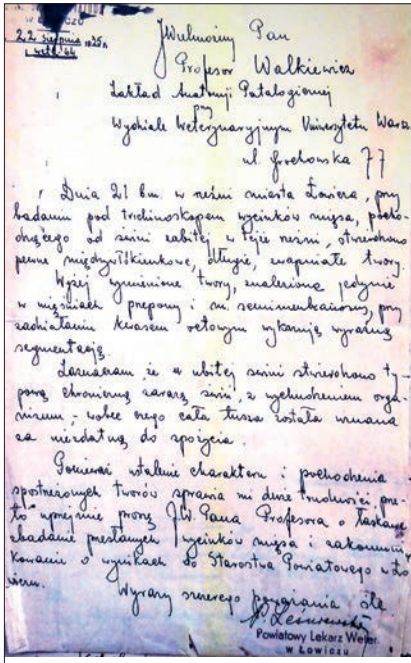 W ŁOWICZU
22 sierpnia 1935 r.
JWielmożny Pan
Profesor Walkiewicz
Zakład Anatomji Patalogicznej
przy
Wydziale Weterynaryjnym Uniwersytetu Warsz
ul. Grochowska 77
Dnia 21 bm. w rzeźni miasta Łowicza, przy
badaniu pod trichinoskopem wycinków mięsa, pocho-
dzącego od świni zabitej w tejże rzeźni, stwierdzono
pewne międzywłókienkowe, długie, zwapniałe twory.
Wyżej wymienione twory, znalezione jedynie
w mięśniach przepony i m. semimembranosus, przy
zadziałaniu kwasem octowym wykazują wyraźną
segmentację.
Zaznaczam, że u ubitej świni stwierdzono ty-
pową chroniczną zarazę świń, z wychudzeniem orga-
nizmu, – wobec czego cała tusza została uznana
za niezdatną do spożycia.
Ponieważ ustalenie charakteru i pochodzenia
spostrzeżonych tworów sprawia mi duże trudności, prze-
to uprzejmie proszę J.W. Pana Profesora o łaskawe
zbadanie przesłanych wycinków mięsa i zakomuni-
kowanie o wynikach do Starostwa Powiatowego w Ło-
wiczu.
Wyrazy szczerego poważania ślę
Powiatowy Lekarz Weter.
w Łowiczu